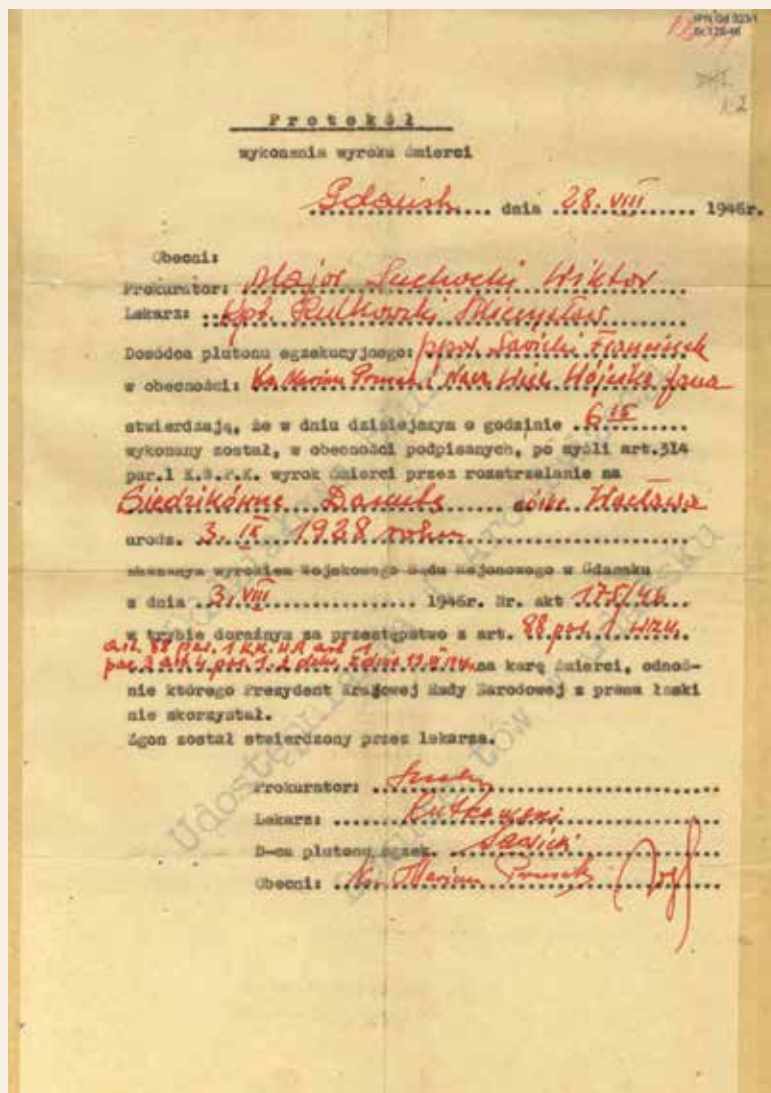 IPN Gd 323/1
Protokół
wykonania wyroku śmierci
Gdańsk dnia 28. VIII 1946r.
Obecni:
Prokurator: Major Suchocki Wiktor
Lekarz: kpt. Rutkowski Mieczysław
Dowódca plutonu egzekucyjnego: ppor. Sawicki Franciszek
w obecności: Ks. Marian Prusak i Nacz. Więz. Wójcika Jana
stwierdzają, że w dniu dzisiejszym o godzinie 6 15
wykonany został, w obecności podpisanych, po myśli art.314
par.1 K.W.P.K. wyrok śmierci przez rozstrzelanie na
Siedzikównę Danutę córkę Wacława
urodz. 3. IX 1928 roku
skazanym wyrokiem Wojskowego Sądu Rejonowego w Gdańsku
z dnia 3. VIII 1946r. Nr. akt 175/46
w trybie doraźnym za przestępstwo z art. 88 par. 1
art. 88 par. 1 art. 1
par. 3 art. 4 par. 1. 2 na karę śmierci, odnoś-
nie którego Prezydent Krajowej Rady Narodowej z prawa łaski
nie skorzystał.
Zgon został stwierdzony przez lekarza.
Prokurator:
Lekarz: Rutkowski
D-ca plutonu egzek. Sawicki
Obecni: Ks. Marian Prusak